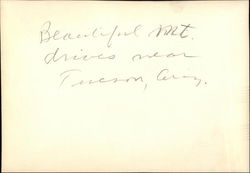 Beautiful Mt.
drives near
Tucson, Ariz.